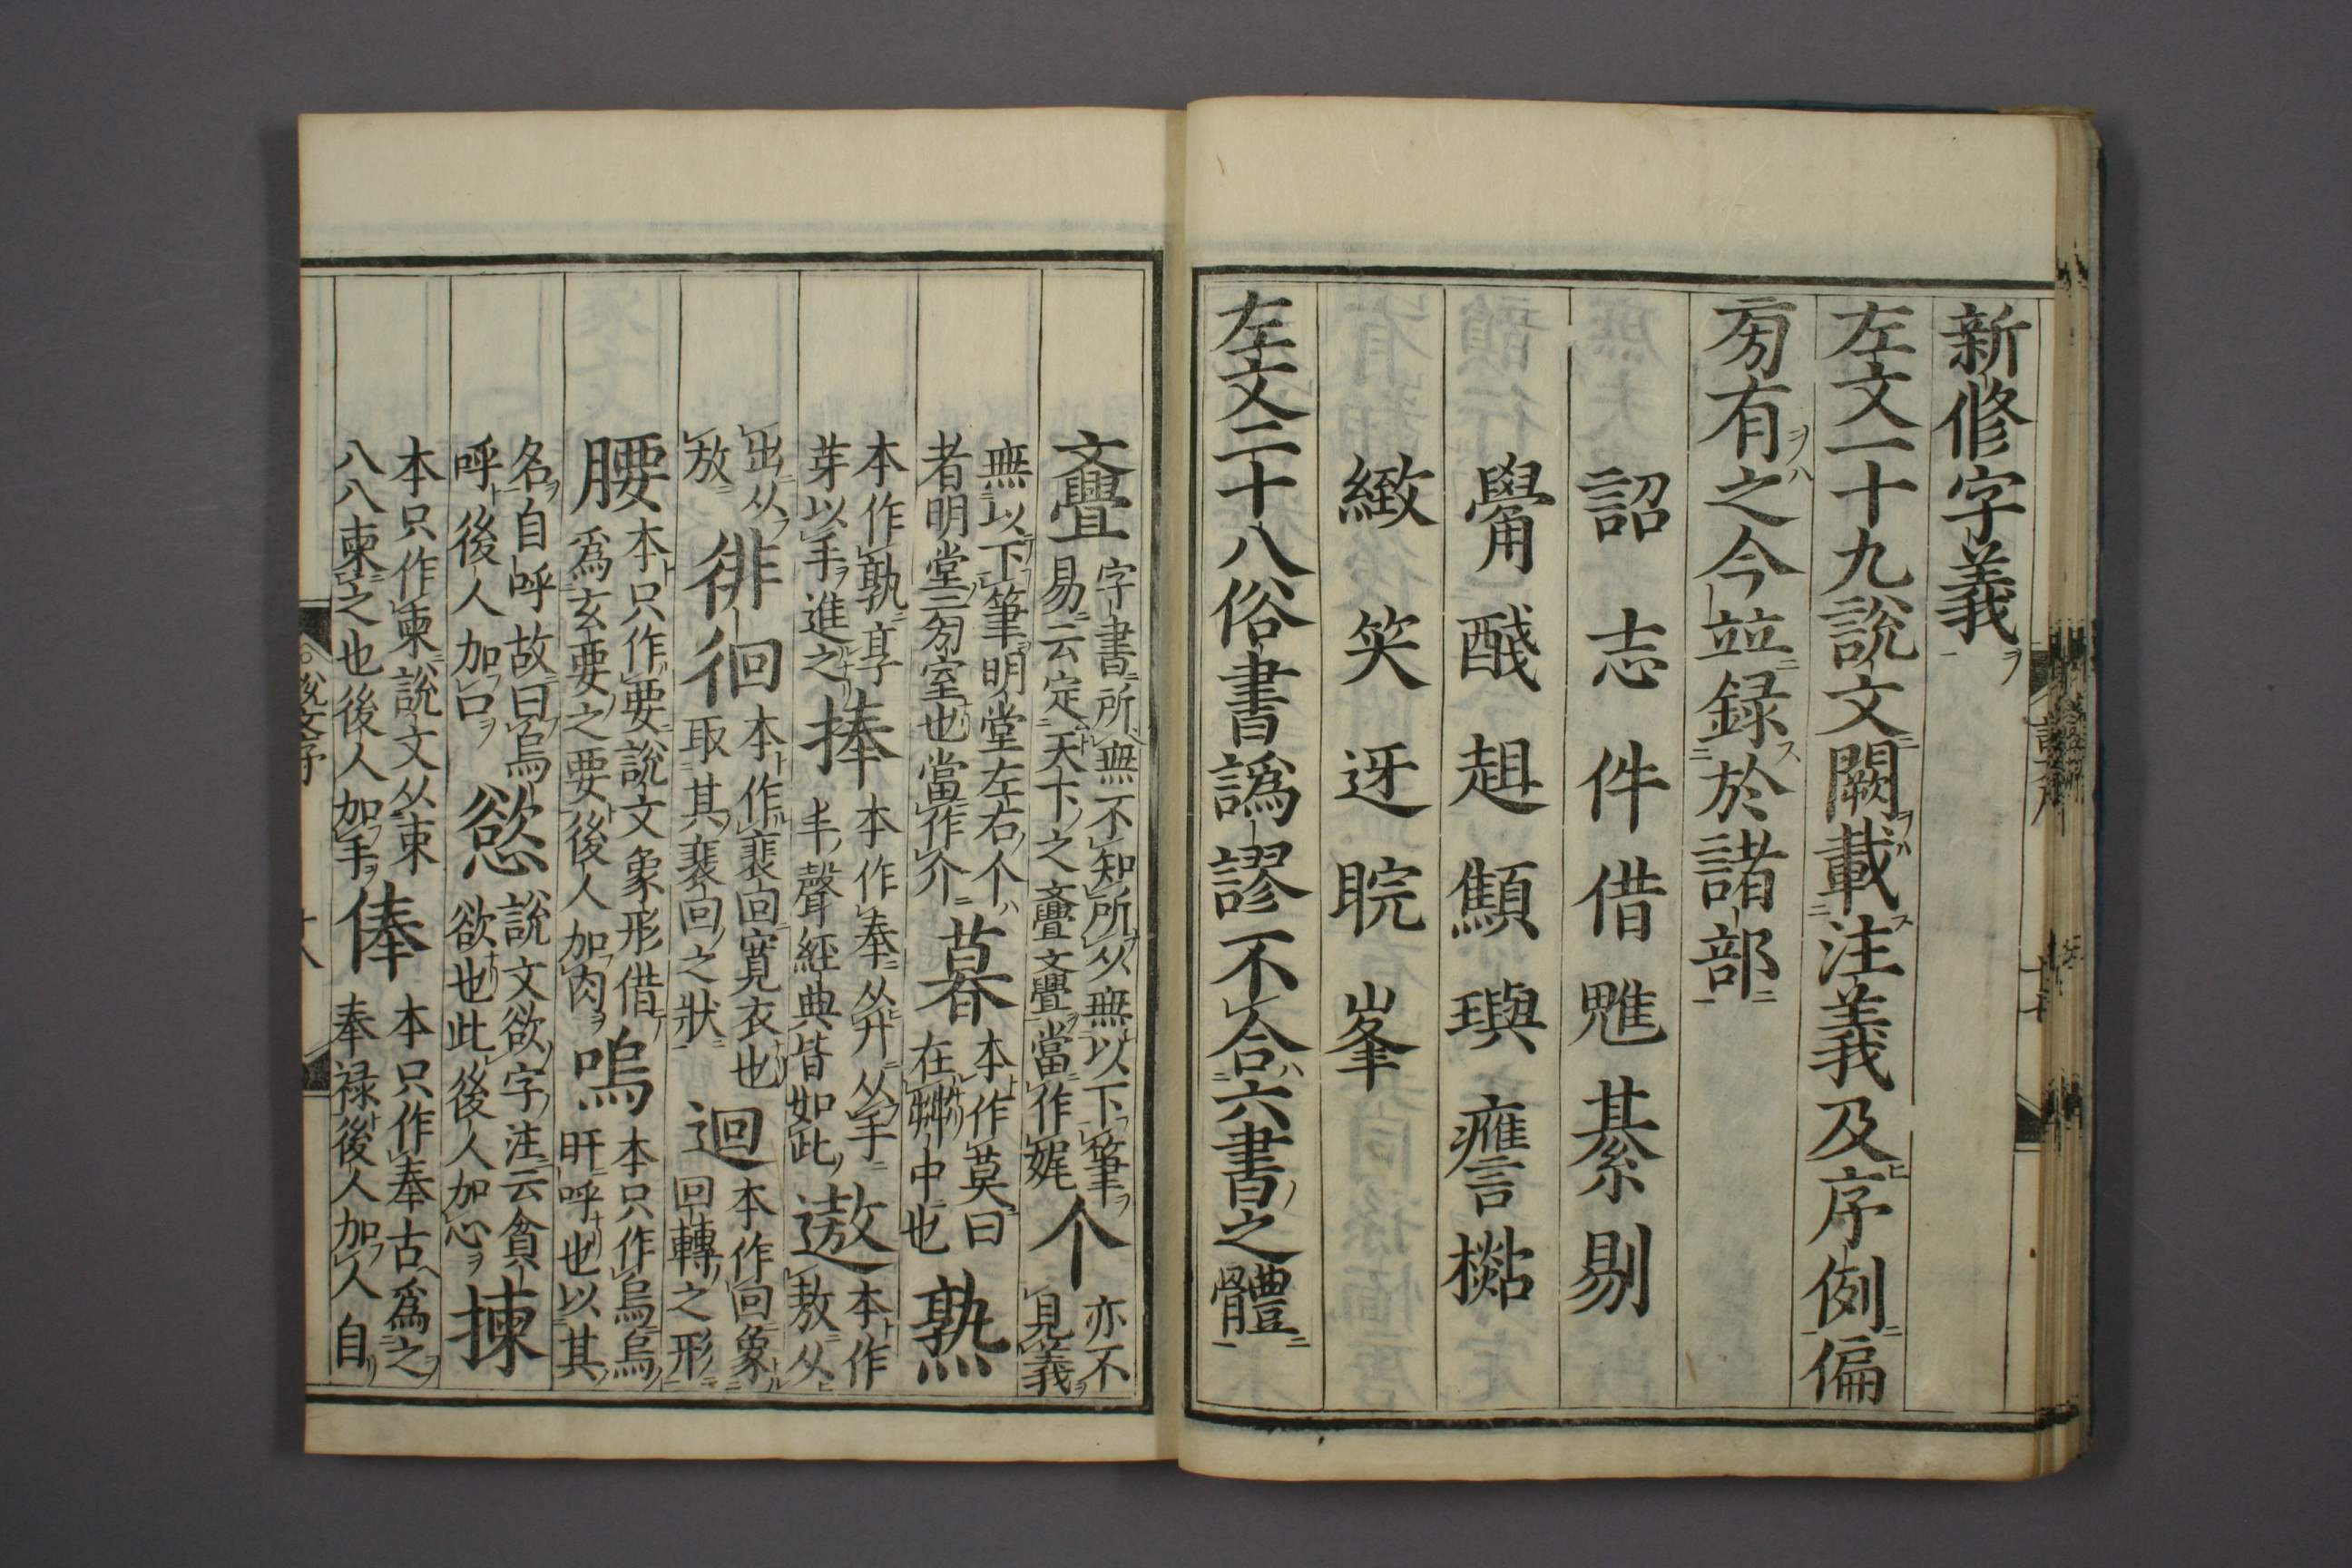 新修字義
左文一十九說文闕載注義及序例偏
㫄有之今竝録於諸部
詔志件借魋綦剔
觷醆趄顦璵譍檆
緻笑迓睆峯
左文二十八俗書譌謬不合六書之體
亹字書所無不知所从無以下筆
易云定天下之亹亹當作娓个亦不
見義
無以下筆明堂左右个
者明堂㫄室也當作介暮本作莫日
在茻中也熟
本作孰享
芽以手進之捧本作奉从廾从手
丰聲經典皆如此遨本作
敖从
出从
放徘徊本作裵回寬衣也
取其裵回之狀迴本作回象
回轉之形
腰本只作要說文象形借
爲玄要之要後人加肉嗚本只作烏烏
旰呼也以其
名自呼故曰烏
呼後人加口慾說文欲字注云貪
欲也此後人加心揀
本只作柬說文从束
八八柬之也後人加手俸本只作奉古爲之
奉禄後人加人自
說文序
十八